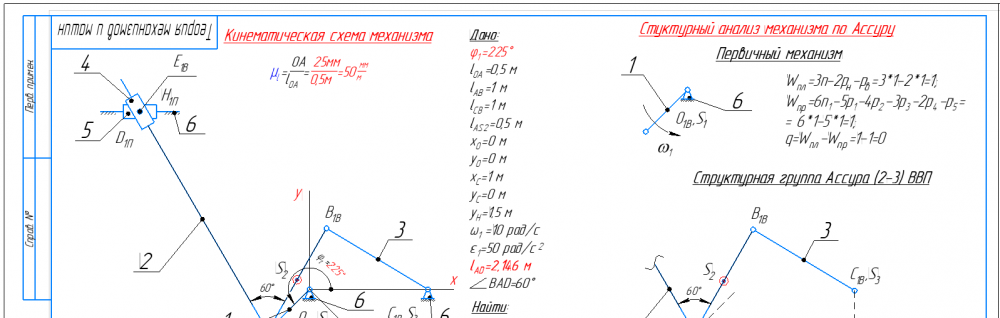 Теория механизмов и машин
Перв. примен.
Справ. №
Кинематическая схема механизма
μl=OA/lOA=25мм/0,5м=50 мм/м
4
E1В
H1П
5
D1П
6
2
B1В
3
y
S2
φ1=225°
x
60°
6
Дано:
φ1=225°
lOA=0,5 м
lAB=1 м
lCB=1 м
lAS2=0,5 м
x0=0 м
y0=0 м
xC=1 м
yC=0 м
yH=1,5 м
ω1=10 рад/с
ε1=50 рад/с²
lAD=2,146 м
∠BAD=60°
Найти:
Стуктурный анализ механизма по Ассуру
Первичный механизм
1
6
O1В,S1
ω1
Wпл=3n-2pн-pв=3*1-2*1=1;
Wпр=6n1-5p1-4p2-3p3-2p4-p5=
= 6*1-5*1=1;
q=Wпл-Wпр=1-1=0
Структурная группа Ассура (2-3) ВВП
B1В
3
S2
C1В,S3
60°